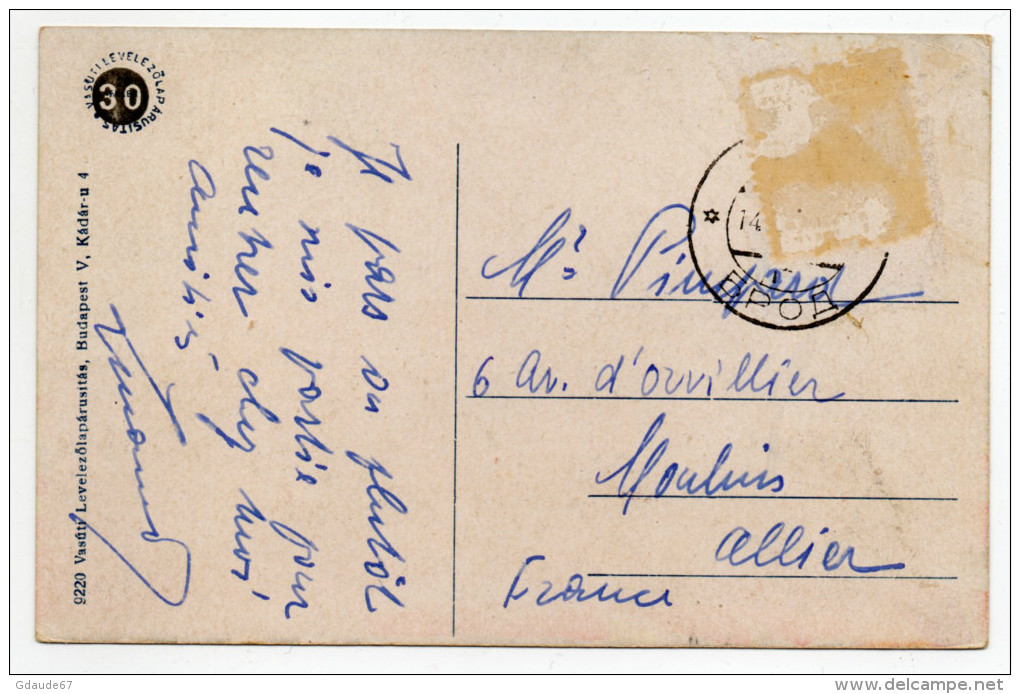 VASUTI LEVELEZŐLAPÁRUSITÁS
30
9220 Vasúti Levelezőlapárusítás, Budapest V, Kádár-u 4
pars ou plutôt
je suis partie pour
rentrer chez moi
Amitiés
14
БРОД
Mr
6 Av. d'orvillier
Moulins
Allier
France
Gdaude67
delcampe.net